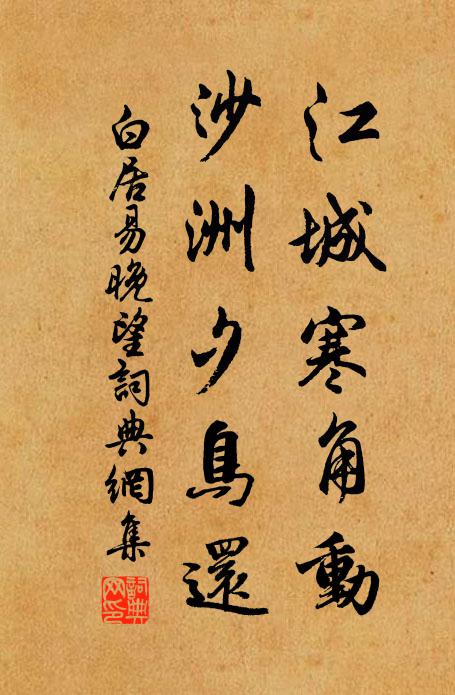 江城寒角動
沙洲夕鳥還
白居易晚望詞典網集
詞典网印